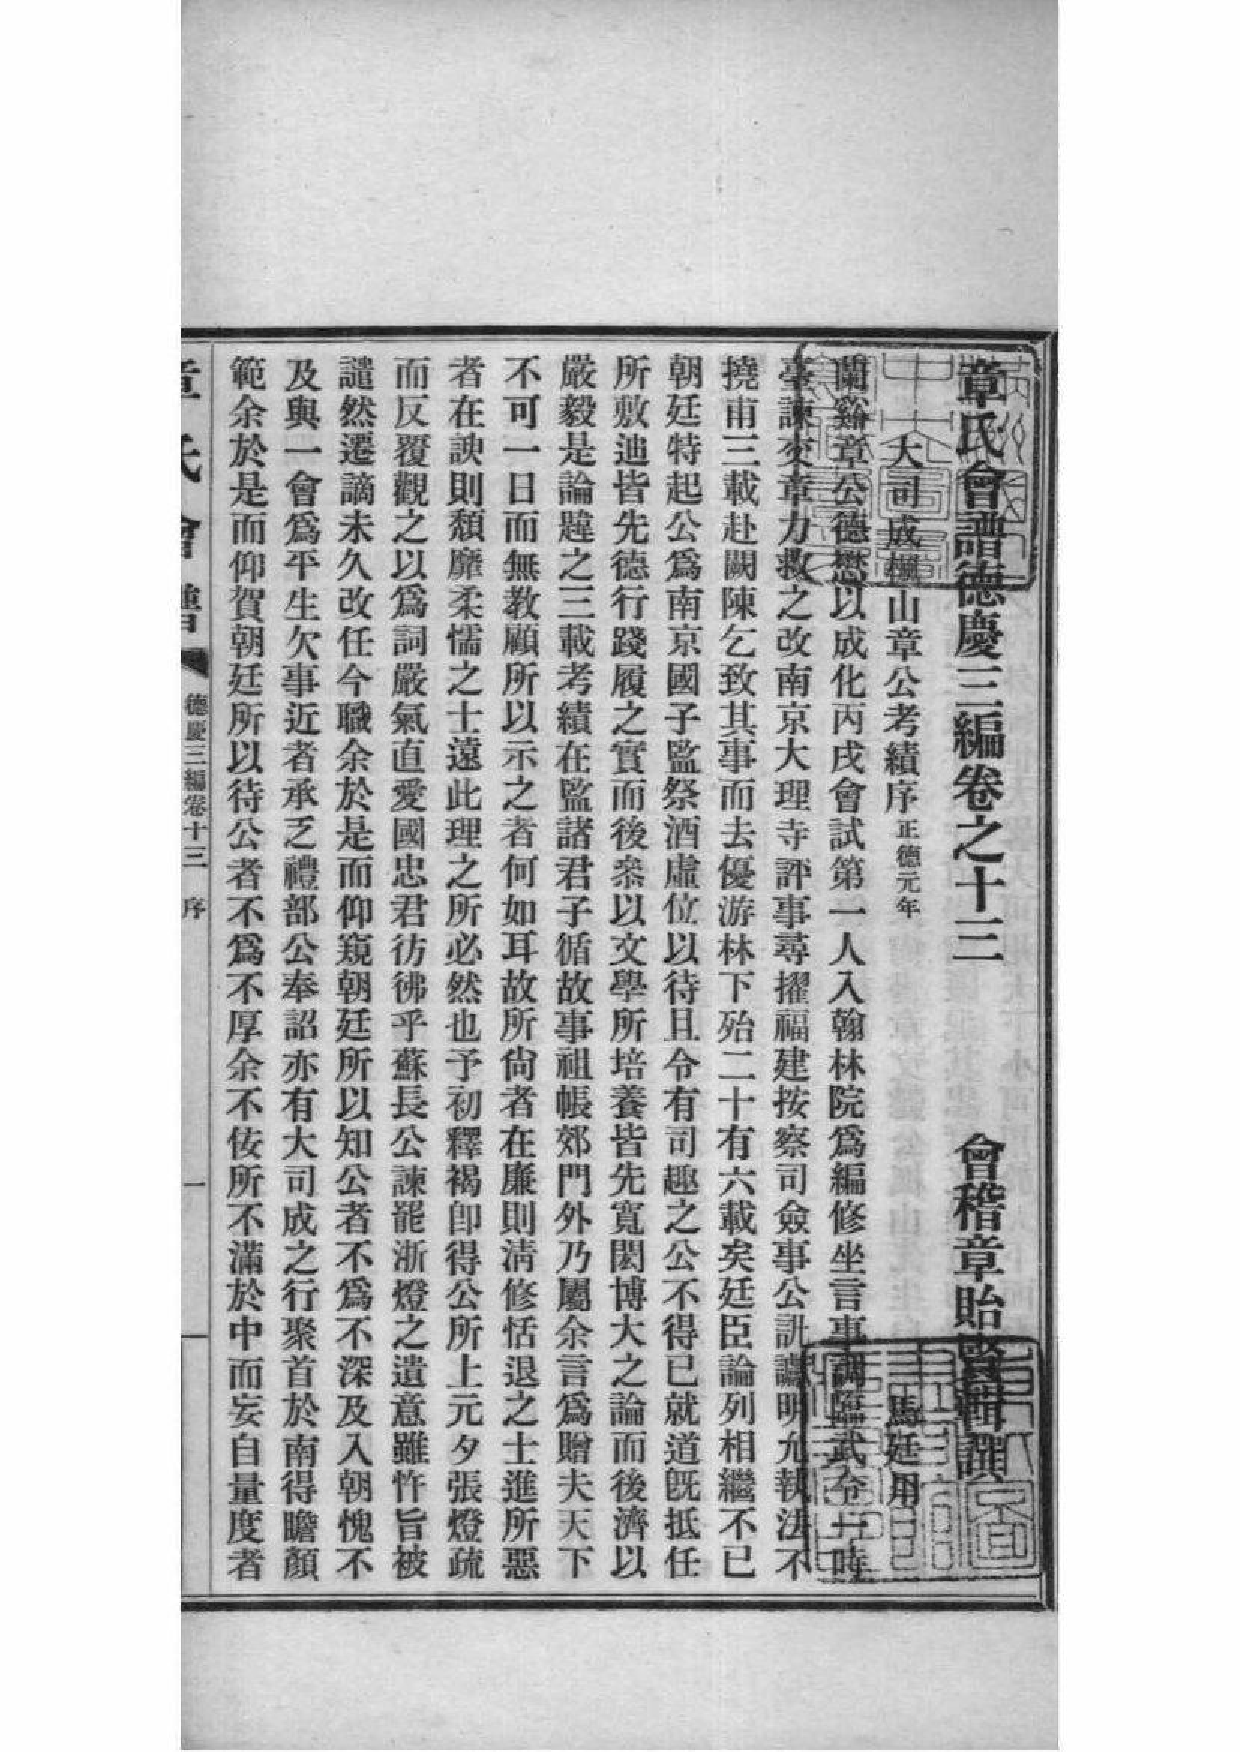 章氏會譜德慶三編卷之十三 會稽章貽賢輯譔
大司成楓山章公考績序正德元年 馬廷用
蘭谿章公德懋以成化丙戌會試第一人入翰林院爲編修坐言事調臨武令一時
臺諫交章力救之改南京大理寺評事尋擢福建按察司僉事公訊讞明允執法不
撓甫三載赴闕陳乞致其事而去優游林下殆二十有六載矣廷臣論列相繼不已
朝廷特起公爲南京國子監祭酒虛位以待且令有司趣之公不得已就道旣抵任
所敷迪皆先德行踐履之實而後叅以文學所培養皆先寬閎博大之論而後濟以
嚴毅是論韙之三載考績在監諸君子循故事祖帳郊門外乃屬余言爲贈夫天下
不可一日而無教顧所以示之者何如耳故所尙者在廉則淸修恬退之士進所惡
者在諛則頹靡柔懦之士遠此理之所必然也予初釋褐卽得公所上元夕張燈疏
而反覆觀之以爲詞嚴氣直愛國忠君彷彿乎蘇長公諫罷浙燈之遺意雖忤旨被
譴然遷謫未久改任今職余於是而仰窺朝廷所以知公者不爲不深及入朝愧不
及與一會爲平生欠事近者承乏禮部公奉詔亦有大司成之行聚首於南得瞻顏
範余於是而仰賀朝廷所以待公者不爲不厚余不佞所不滿於中而妄自量度者
章氏會譜 德慶三編卷十三 序 一